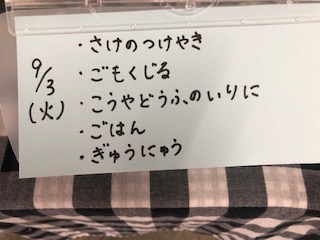 9/3
(火)
・さけのつけやき
・ごもくじる
・こうやどうふのいりに
・ごはん
・ぎゅうにゅう